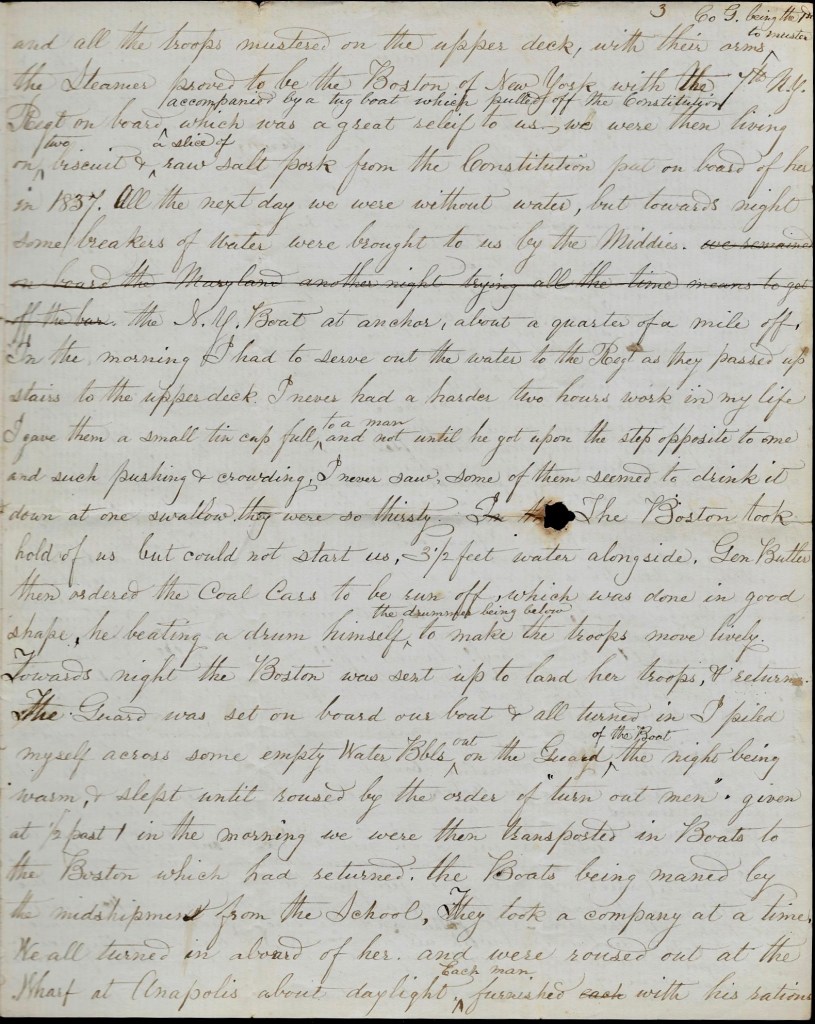 3 Co G. being the 1st
to muster
and all the troops mustered on the upper deck, with their arms
the Steamer proved to be the Boston of New York with the 7th N.Y.
accompanied by a tug boat which pulled off the Constitution
Regt on board, which was a great releif to us, we were then living
two a slice of
on biscuit & raw salt pork from the Constitution put on board of her
in 1837. All the next day we were without water, but towards night
some breakers of water were brought to us by the Middies. we remained
on board the Maryland another night trying all the time means to get
off the bar. the N.Y. Boat at anchor, about a quarter of a mile off.
In the morning I had to serve out the water to the Regt as they passed up
stairs to the upper deck. I never had a harder two hours work in my life
to a man
I gave them a small tin cup full, and not until he got upon the step opposite to me
and such pushing & crowding, I never saw, some of them seemed to drink it
down at one swallow. they were so thirsty. In the The Boston took
hold of us but could not start us, 3 1/2 feet water alongside. Gen Butler
then ordered the Coal Cars to be run off, which was done in good
the drummer being below
shape, he beating a drum himself, to make the troops move lively.
Towards night the Boston was sent up to land her troops, & return.
The Guard was set on board our boat & all turned in I piled
out of the Boat
myself across some empty Water Bbls on the Guard, the night being
warm, & slept until roused by the order of "turn out men". given
at 1/2 past 1 in the morning we were then transposted in Boats to
the Boston which had returned. the Boats being maned by
the midshipmen from the School, They took a company at a time.
We all turned in aboard of her. and were roused out at the
Each man
Wharf at Anapolis about daylight, furnished each with his rations